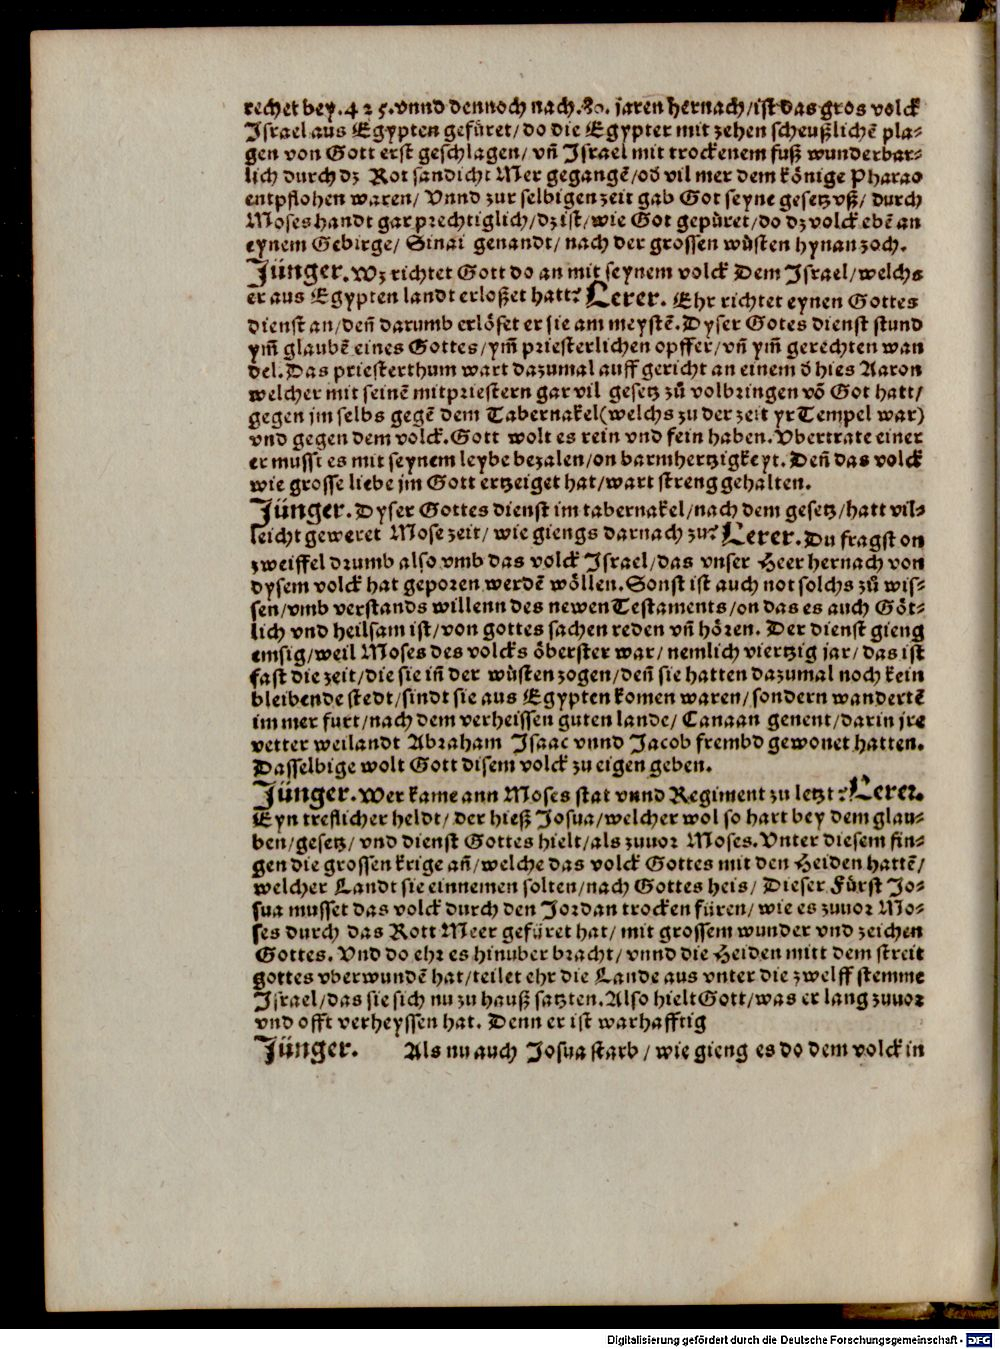 rechet bey.425.vnnd dennoch nach.80. jaren hernach/ist das gros volck
Israel aus Egypten gefüret/do die Egypter mit zehen scheußlichẽ pla⸗
gen von Gott erst geschlagen/vñ Israel mit trockenem fuß wunderbar⸗
lich durch dz Rot sandicht Mer gegangẽ/od̄ vil mer dem könige Pharao
entpflohen waren/Vnnd zur selbigen zeit gab Got seyne gesetz vß/durch
Moses handt gar prechtiglich/dz ist/wie Got gepüret/do dz volck ebẽ an
eynem Gebirge/ Sinai genandt/nach der grossen wüsten hynan zoch.
Jünger. Wz richtet Gott do an mit seynem volck Dem Israel/welchs
er aus Egypten landt erloßet hatt? Lerer. Ehr richtet eynen Gottes
dienst an/deñ darumb erlöset er sie am meystẽ. Dyser Gotes dienst stund
ym̃ glaubẽ eines Gottes/ym̃ priesterlichen opffer/vñ ym̃ gerechten wan
del. Das priesterthum wart dazumal auff gericht an einem d̄ hies Aaron
welcher mit seinẽ mitpriestern gar vil gesetz zů volbringen võ Got hatt/
gegen jm selbs gegẽ dem Tabernakel(welchs zu der zeit yr Tempel war)
vnd gegen dem volck. Gott wolt es rein vnd fein haben. Vbertrate einer
er musst es mit seynem leybe bezalen/on barmhertzigkeyt. Deñ das volck
wie grosse liebe jm Gott ertzeiget hat/wart streng gehalten.
Jünger. Dyser Gottes dienst im tabernakel/nach dem gesetz/hatt vil⸗
leicht geweret Mose zeit/wie giengs darnach zu? Lerer. Du fragst on
zweiffel drumb also vmb das volck Israel/das vnser Heer hernach von
dysem volck hat geporen werdẽ wöllen. Sonst ist auch not solchs zů wis⸗
sen/vmb verstands willenn des newen Testaments/on das es auch Göt⸗
lich vnd heilsam ist/von gottes sachen reden vñ hören. Der dienst gieng
emsig/weil Moses des volcks öberster war/nemlich viertzig jar/das ist
fast die zeit/die sie iñ der wüsten zogen/deñ sie hatten dazumal noch kein
bleibende stedt/sindt sie aus Egypten komen waren/sondern wandertẽ
im mer furt/nach dem verheissen guten lande/Canaan genent/darin jre
vetter weilandt Abraham Isaac vnnd Jacob frembd gewonet hatten.
Dasselbige wolt Gott disem volck zu eigen geben.
Jünger. Wer kame ann Moses stat vnnd Regiment zu letzt? Lerer.
Eyn treflicher heldt/der hieß Josua/welcher wol so hart bey dem glau⸗
ben/gesetz/vnd dienst Gottes hielt/als zuuor Moses. Vnter diesem fin⸗
gen die grossen krige añ/welche das volck Gottes mit den Heiden hattẽ/
welcher Landt sie einnemen solten/nach Gottes heis/Dieser Fürst Jo⸗
sua musset das volck durch den Jordan trocken füren/wie es zuuor Mo⸗
ses durch das Rott Meer gefüret hat/mit grossem wunder vnd zeichen
Gottes. Vnd do ehr es hinuber bracht/vnnd die Heiden mitt dem streit
gottes vberwundẽ hat/teilet ehr die Lande aus vnter die zwelff stemme
Israel/das sie sich nu zu hauß satzten. Also hielt Gott/was er lang zuuor
vnd offt verheyssen hat. Denn er ist warhafftig
Jünger. Als nu auch Josua starb/wie gieng es do dem volck in
Digitalisierung gefördert durch die Deutsche Forschungsgemeinschaft - DFG